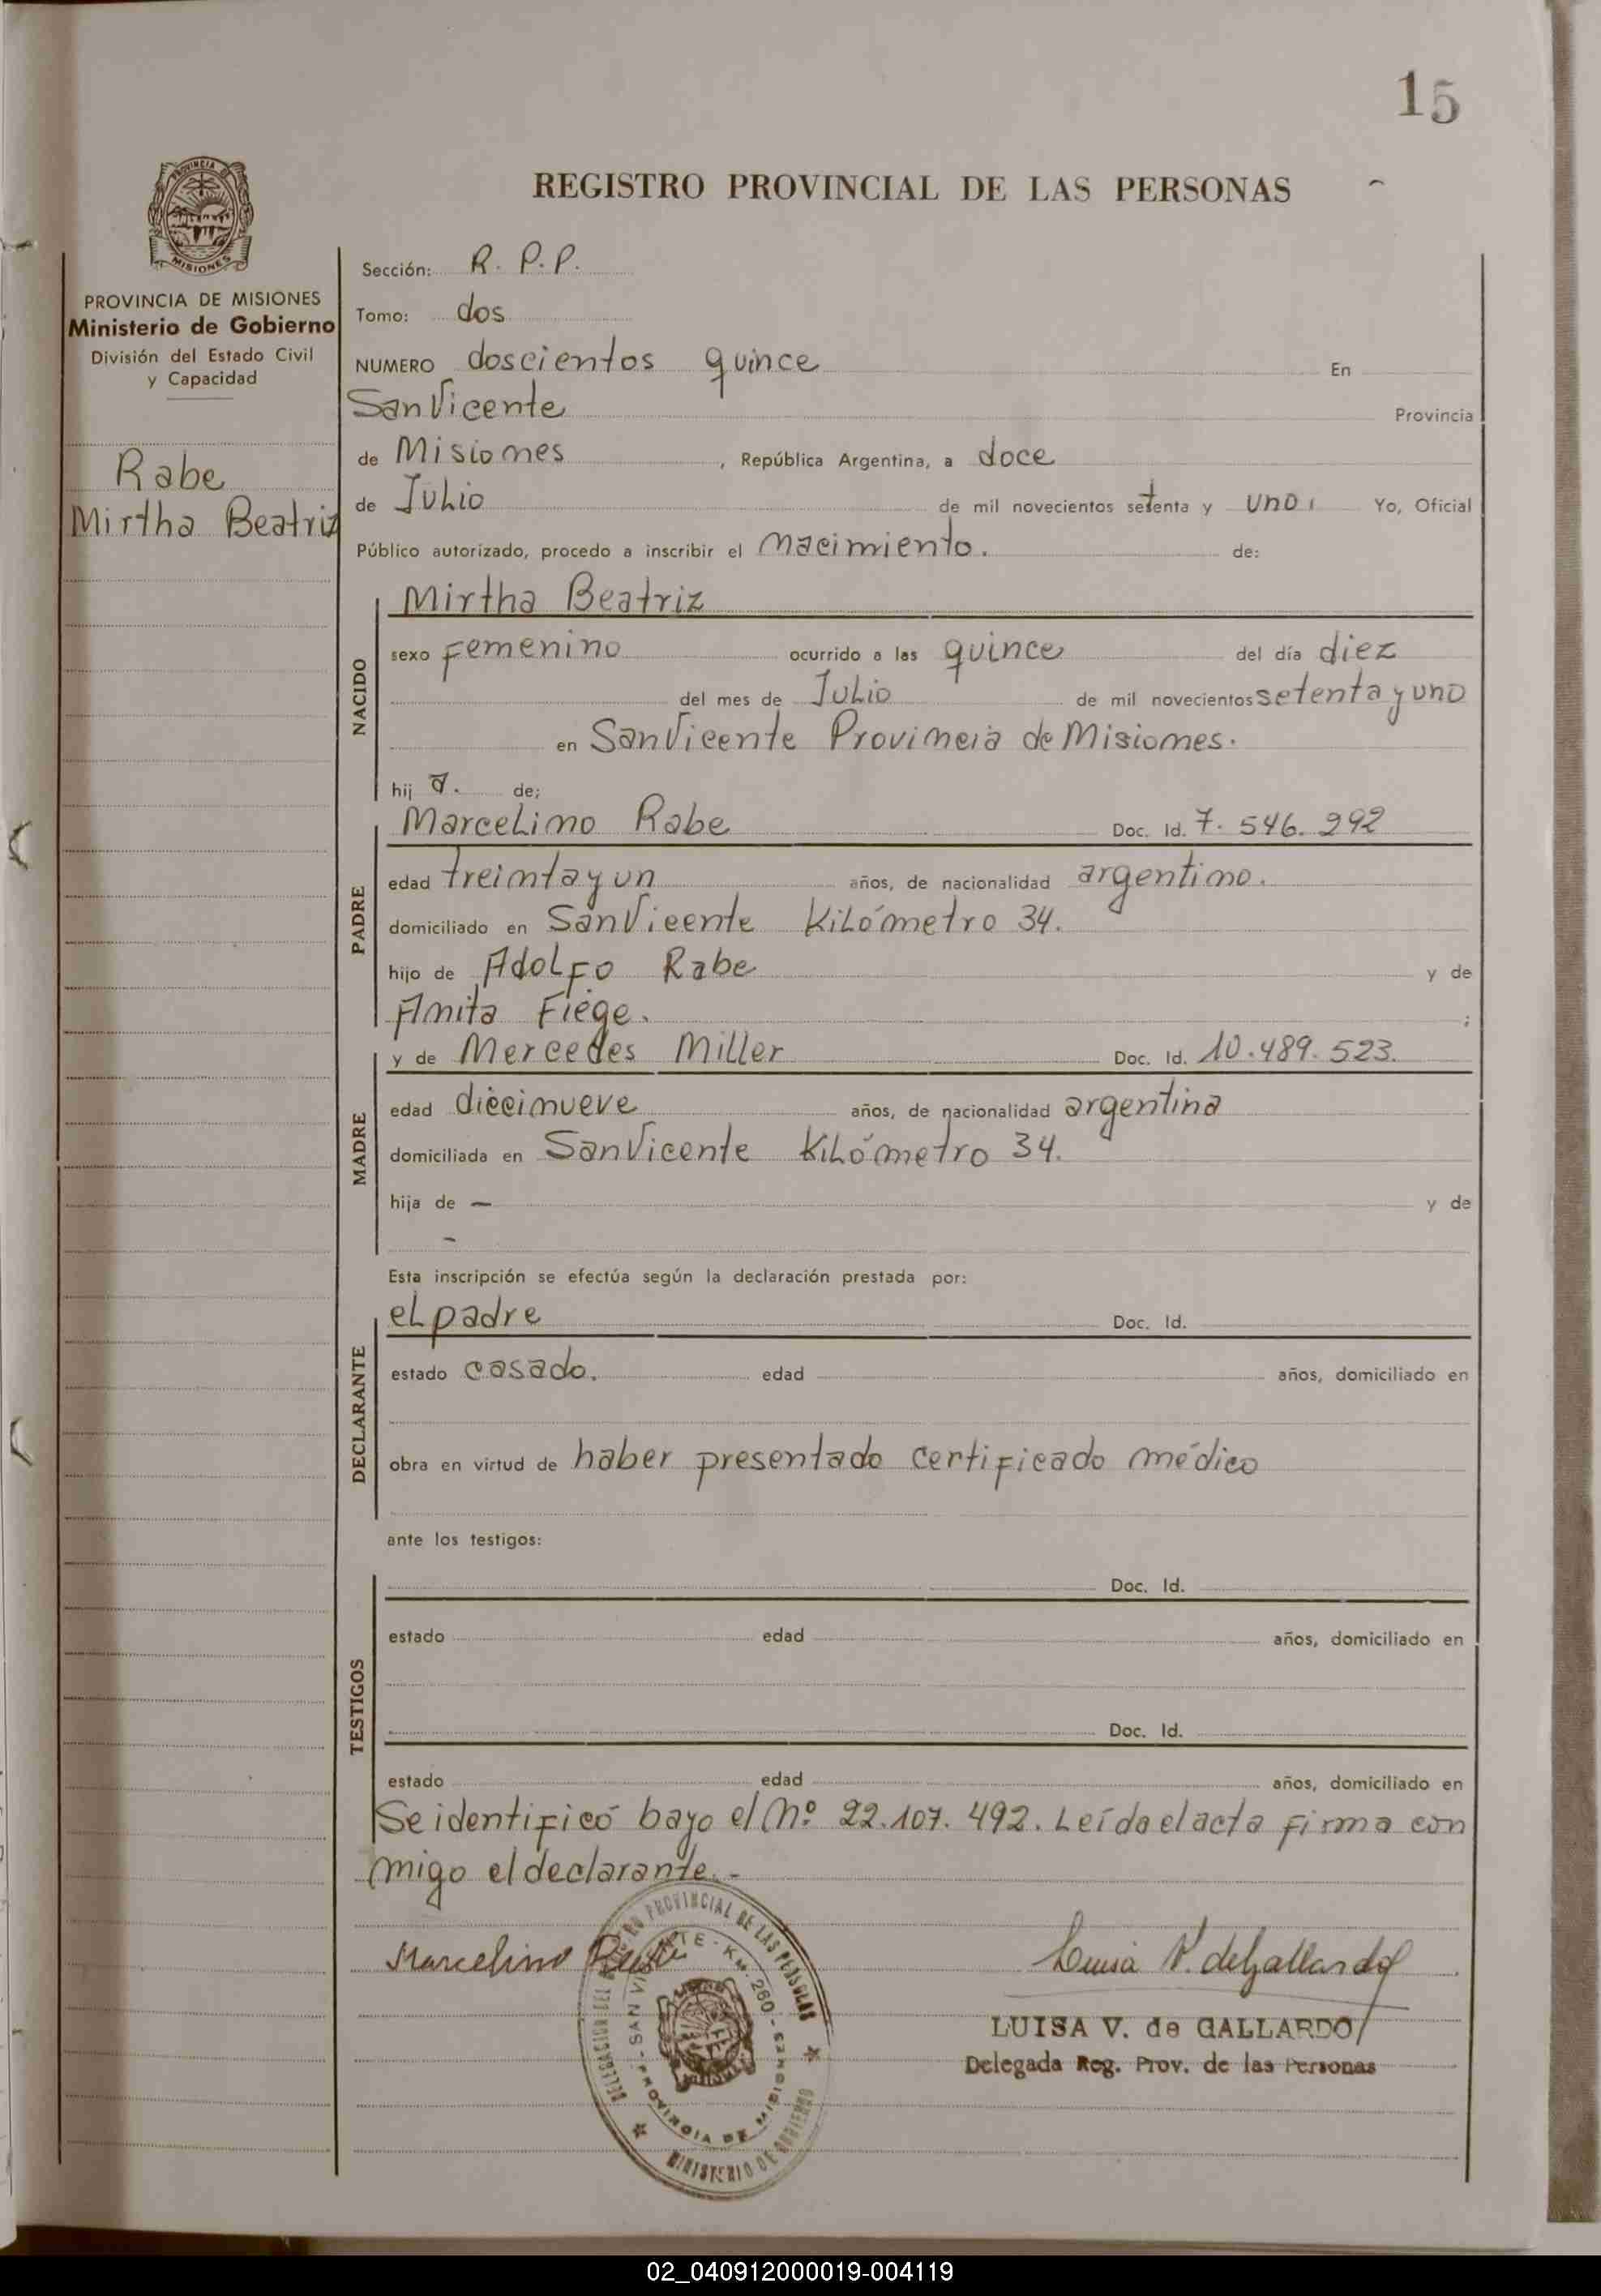 15
REGISTRO PROVINCIAL DE LAS PERSONAS
PROVINCIA
MISIONES
PROVINCIA DE MISIONES
Ministerio de Gobierno
División del Estado Civil
y Capacidad
Rabe
Mirtha Beatriz
Sección: R. P.P.
Tomo: dos
NUMERO doscientos quince En
San Vicente Provincia
de Misiones, República Argentina, a doce
de Julio de mil novecientos setenta y uno, Yo, Oficial
Público autorizado, procedo a inscribir el nacimiento. de:
NACIDO
Mirtha Beatriz
sexo femenino ocurrido a las quince del día diez
del mes de Julio de mil novecientos setenta y uno
en San Vicente Provincia de Misiones.
hija. de;
PADRE
Marcelino Rabe Doc. Id. 7. 546. 292
edad treinta y un años, de nacionalidad argentino.
domiciliado en San Vicente Kilómetro 34.
hijo de Adolfo Rabe y de
Anita Fiege. ;
MADRE
y de Mercedes Miller Doc. Id. 10.489.523.
edad diecinueve años, de nacionalidad argentina
domiciliada en San Vicente Kilómetro 34.
hija de — y de
-
Esta inscripción se efectúa según la declaración prestada por:
DECLARANTE
el padre Doc. Id.
estado casado. edad años, domiciliado en
obra en virtud de haber presentado certificado médico
ante los testigos:
TESTIGOS
Doc. Id.
estado edad años, domiciliado en
Doc. Id.
estado edad años, domiciliado en
Se identificó bajo el nº 22.107.492. Leída el acta firma con
migo el declarante.-
Marcelino Rabe
Luisa V. de Gallardo
LUISA V. de GALLARDO
Delegada Reg. Prov. de las Personas
DELEGACION DEL REGISTRO PROVINCIAL DE LAS PERSONAS
SAN VICENTE - KM. 260 -
PROVINCIA DE MISIONES
MINISTERIO DE GOBIERNO
02_040912000019-004119